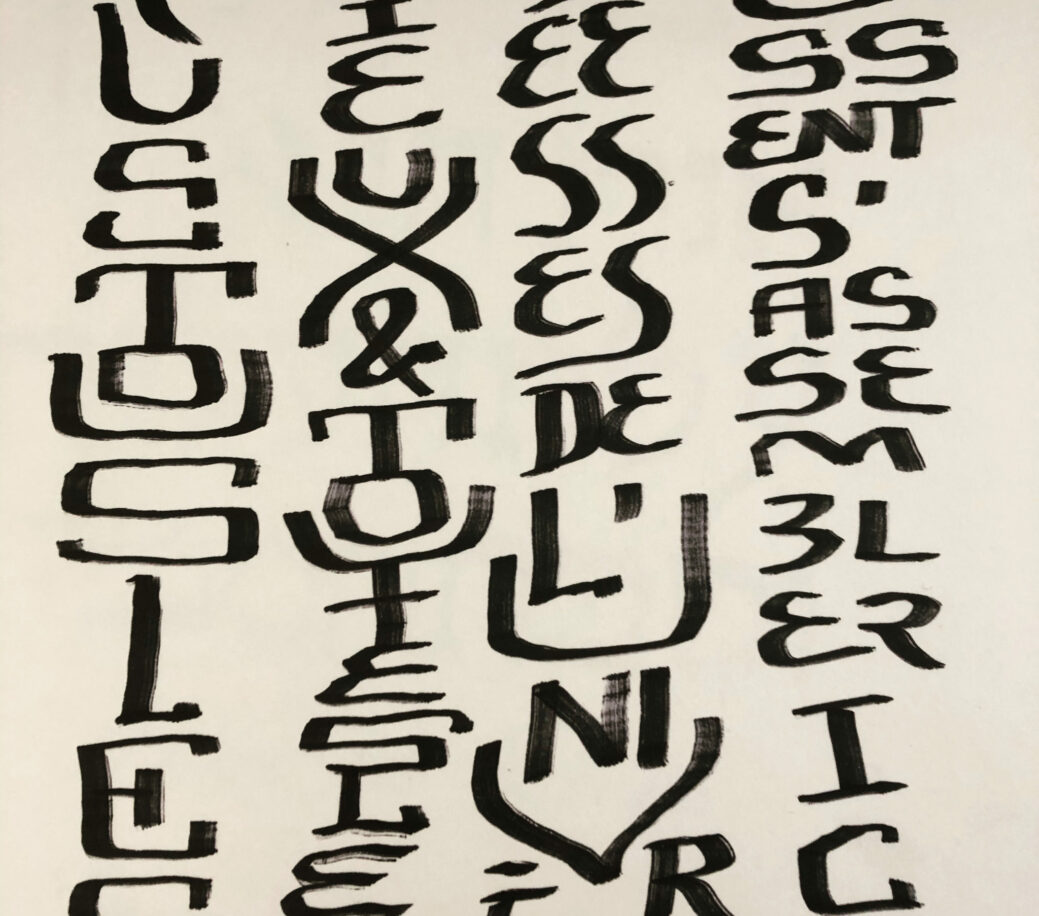 US TOUS LES
IEUX & TOUTES LE
ÉESSES DE L'UNIVER
SSENT S'ASSEMBLER IC